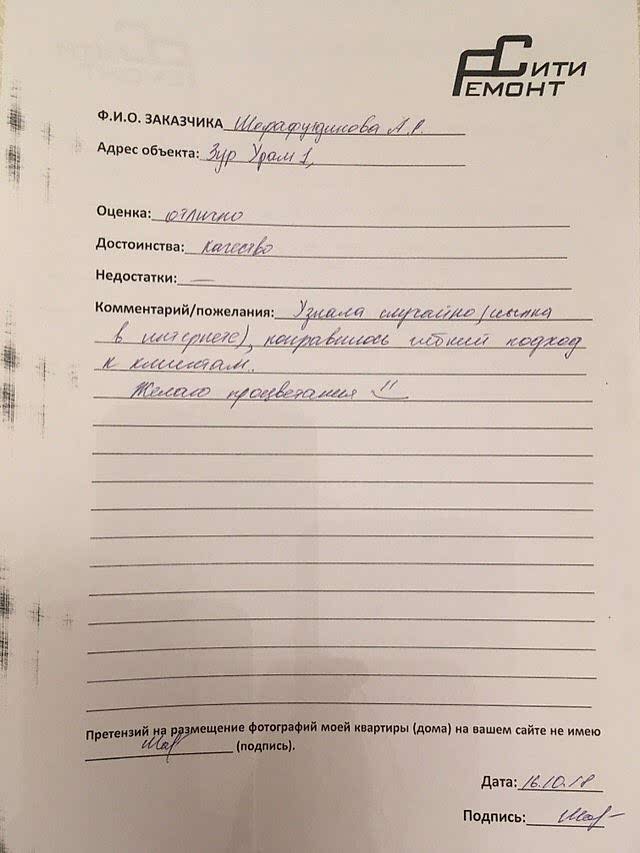 СИТИ
РЕМОНТ
Ф.И.О. ЗАКАЗЧИКА Шарафутдинова А.Р.
Адрес объекта: Зур Урам 1,
Оценка: отлично
Достоинства: качество
Недостатки: —
Комментарий/пожелания: Узнала случайно (ссылка
в интернете), понравилось гибкий подход
к клиентам.
Желаю процветания
Претензий на размещение фотографий моей квартиры (дома) на вашем сайте не имею
(подпись).
Дата: 16.10.18
Подпись: